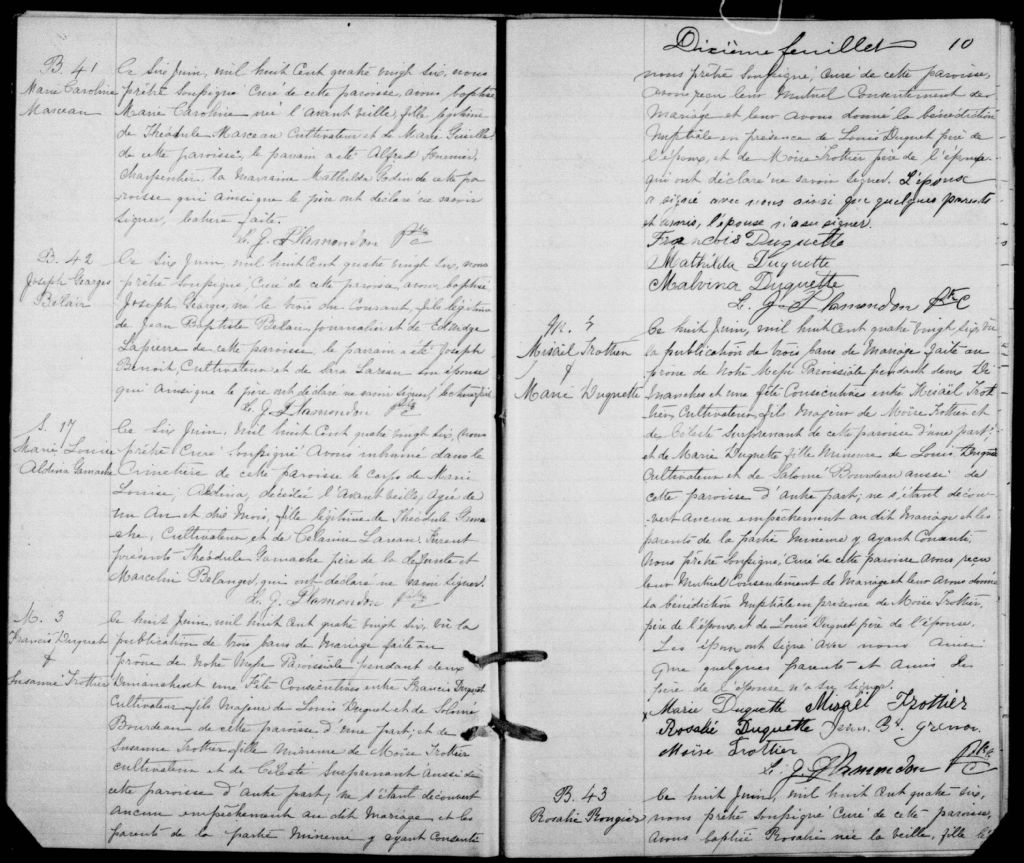 B. 41
Marie Caroline
Marceau
Ce six Juin, mil huit Cent quatre vingt six, nous
prêtre soussigné Curé de cette paroisse, avons baptisé
Marie Caroline née l'avant veille, fille légitime
de Théodule Marceau Cultivateur et de Marie
de cette paroisse, le parrain a été Alfred
Charpentier, la Marraine Mathilda Godin de cette pa
roisse qui ainsi que le père ont déclaré ne savoir
signer, lecture faite.
L. J. Plamondon Ptre C
B. 42
Joseph Georges
Belair
Ce six Juin, mil huit Cent quatre vingt six, nous
prêtre soussigné, Curé de cette paroisse, avons baptisé
Joseph Georges, né le trois du Courant, fils légitime
de Jean Baptiste Belair journalier et de Edwidge
Lapierre de cette paroisse, le parrain a été Joseph
Benoit, Cultivateur et de Lareau son épouse
qui ainsi que le père ont déclaré ne savoir signer, lecture faite
L. J. Plamondon Ptre C
S. 17
Marie Louise
Aldina Gamache
Ce six Juin, mil huit Cent quatre vingt six, nous
prêtre Curé soussigné Avons inhumé dans le
Cimetière de cette paroisse le corps de Marie
Louise, Aldina, décédée l'Avant veille, Agée de
un An et dix Mois, fille légitime de Théodule Gama
che, Cultivateur et de Célanire Lareau. Furent
présents Théodule Gamache père de la défunte et
Marcelin Belanger, qui ont déclaré ne savoir signer.
L. J. Plamondon Ptre C
M. 3
Francis Duquet
&
Susanne Trottier
Ce huit Juin, mil huit Cent quatre vingt six, vu la
publication de trois bans de Mariage faite au
prône de Notre Messe Paroissiale pendant deux
Dimanches et une Fête Consécutives entre Francis Duquet
Cultivateur, fils Majeur de Louis Duquet et de Salomé
Bourdeau de cette paroisse d'une part; et de
Susanne Trottier, fille Mineure de Moïse Trottier
cultivateur et de Céleste Surprenant aussi de
cette paroisse d'autre part; ne s'étant découvert
aucun empêchement au dit Mariage et les
parents de la partie Mineure y ayant Consenti
Dixième feuillet 10
nous prêtre soussigné, Curé de cette paroisse,
avons reçu leur Mutuel Consentement de
Mariage et leur avons donné la bénédiction
Nuptiale en présence de Louis Duquet père de
l'époux, et de Moïse Trottier père de l'épouse
qui ont déclaré ne savoir signer. L'épouse
a signé avec nous ainsi que quelques parents
et amis, l'épouse n'a su signer.
François Duquette
Mathilda Duquette
Malvina Duquette
L. J. Plamondon Ptre C
M.
Misaël Trottier
&
Marie Duquette
Ce huit Juin, mil huit Cent quatre vingt six, vu
la publication de trois bans de Mariage faite au
prône de Notre Messe Paroissiale pendant deux Di
manches et une fête Consécutives entre Misaël Trot
tier, Cultivateur, fils Majeur de Moïse Trottier et
de Céleste Surprenant de cette paroisse d'une part;
et de Marie Duquette fille Mineure de Louis Duquet
Cultivateur et de Salomé Bourdeau aussi de
cette paroisse d'autre part; ne s'étant décou-
vert aucun empêchement au dit Mariage et les
parents de la partie Mineure y ayant Consenti,
Nous prêtre soussigné, Curé de cette paroisse Avons reçu
leur Mutuel Consentement de Mariage et leur Avons donné
la bénédiction Nuptiale en présence de Moïse Trottier,
père de l'époux, et de Louis Duquet père de l'épouse.
Les époux ont signé avec nous ainsi
que quelques parents et amis. Le
père de l'épouse n'a su signer.
Marie Duquette Misaël Trottier
Rosalie Duquette Jean Bt. Grenon
Moïse Trottier
L. J. Plamondon Ptre C
B. 43
Rosalie Rougier
Ce huit Juin, mil huit Cent quatre six,
nous prêtre soussigné Curé de cette paroisse,
avons baptisé Rosalie née la veille, fille lé